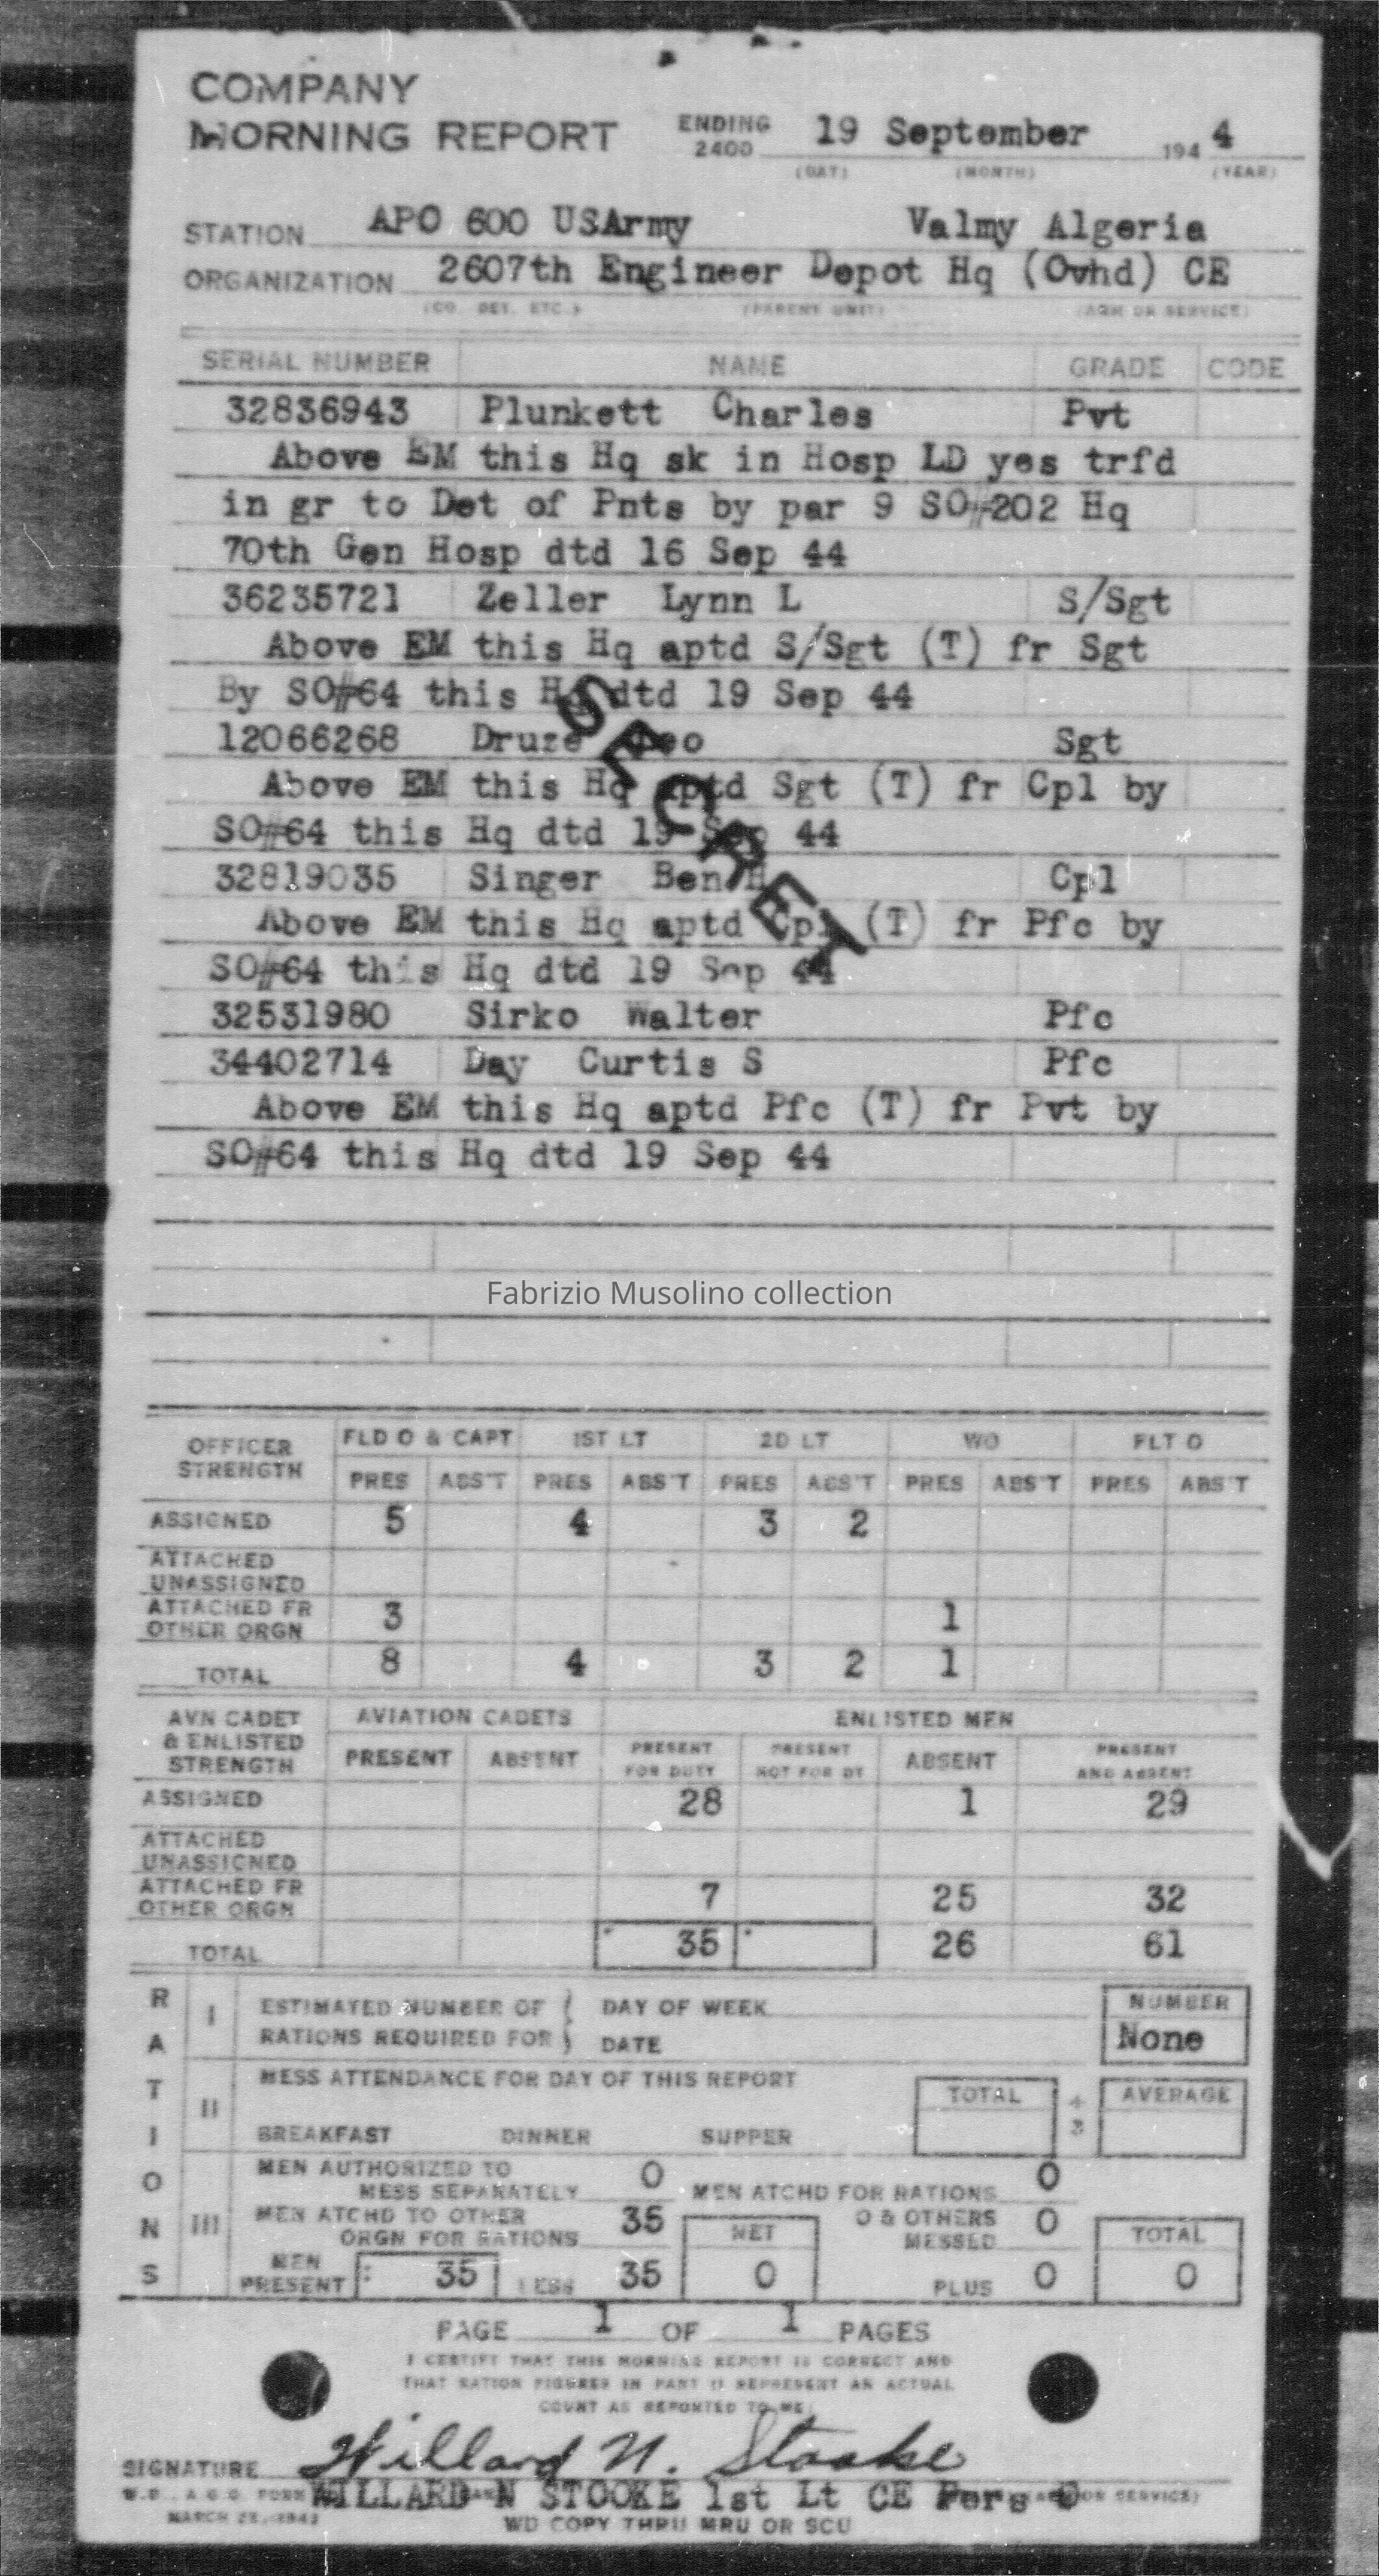 COMPANY
MORNING REPORT ENDING 2400 19 September 194 4
(DAY) (MONTH) (YEAR)
STATION APO 600 USArmy Valmy Algeria
ORGANIZATION 2607th Engineer Depot Hq (Ovhd) CE
(CO. DET. ETC.) (PARENT UNIT) (ARM OR SERVICE)
SERIAL NUMBER NAME GRADE CODE
32836943 Plunkett Charles Pvt
Above EM this Hq sk in Hosp LD yes trfd
in gr to Det of Pnts by par 9 SO#202 Hq
70th Gen Hosp dtd 16 Sep 44
36235721 Zeller Lynn L S/Sgt
Above EM this Hq aptd S/Sgt (T) fr Sgt
By SO#64 this Hq dtd 19 Sep 44
12066268 Druze Sgt
Above EM this Hq aptd Sgt (T) fr Cpl by
SO#64 this Hq dtd 19 Sep 44
32819035 Singer Ben H Cpl
Above EM this Hq aptd Cpl (T) fr Pfc by
SO#64 this Hq dtd 19 Sep 44
SECRET
32531980 Sirko Walter Pfc
34402714 Day Curtis S Pfc
Above EM this Hq aptd Pfc (T) fr Pvt by
SO#64 this Hq dtd 19 Sep 44
Fabrizio Musolino collection
OFFICER STRENGTH FLD O & CAPT 1ST LT 2D LT WO FLT O
PRES ABS'T PRES ABS'T PRES ABS'T PRES ABS'T PRES ABS'T
ASSIGNED 5 4 3 2
ATTACHED UNASSIGNED
ATTACHED FR OTHER ORGN 3 1
TOTAL 8 4 3 2 1
AVN CADET & ENLISTED STRENGTH AVIATION CADETS ENLISTED MEN
PRESENT ABSENT PRESENT FOR DUTY PRESENT NOT FOR DY ABSENT PRESENT AND ABSENT
ASSIGNED 28 1 29
ATTACHED UNASSIGNED
ATTACHED FR OTHER ORGN 7 25 32
TOTAL 35 26 61
RATIONS
I ESTIMATED NUMBER OF RATIONS REQUIRED FOR DAY OF WEEK DATE NUMBER None
II MESS ATTENDANCE FOR DAY OF THIS REPORT TOTAL ÷ 3 AVERAGE
BREAKFAST DINNER SUPPER
III MEN AUTHORIZED TO MESS SEPARATELY 0 MEN ATCHD FOR RATIONS 0
MEN ATCHD TO OTHER ORGN FOR RATIONS 35 NET O & OTHERS MESSED 0 TOTAL
MEN PRESENT 35 LESS 35 0 PLUS 0 0
PAGE 1 OF 1 PAGES
I CERTIFY THAT THIS MORNING REPORT IS CORRECT AND
THAT RATION FIGURES IN PART II REPRESENT AN ACTUAL
COUNT AS REPORTED TO ME
SIGNATURE Willard N. Stooke
WILLARD N STOOKE 1st Lt CE Pers O
W.D., A.G.O. FORM OR SERVICE)
MARCH 1943
WD COPY THRU MRU OR SCU